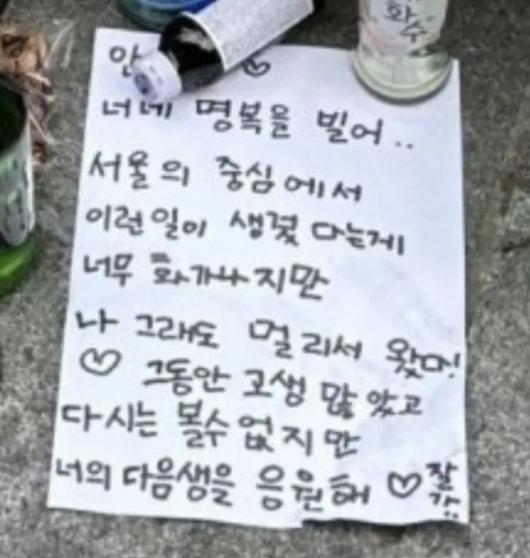 화수
안
너네 명복을 빌어..
서울의 중심에서
이런일이 생겼 다는게
너무 화가나지만
나 그래도 멀리서 왔어!
♡ 그동안 고생 많았고
다시는 볼수 없지만
너의 다음생을 응원해 ♡ 잘가!!